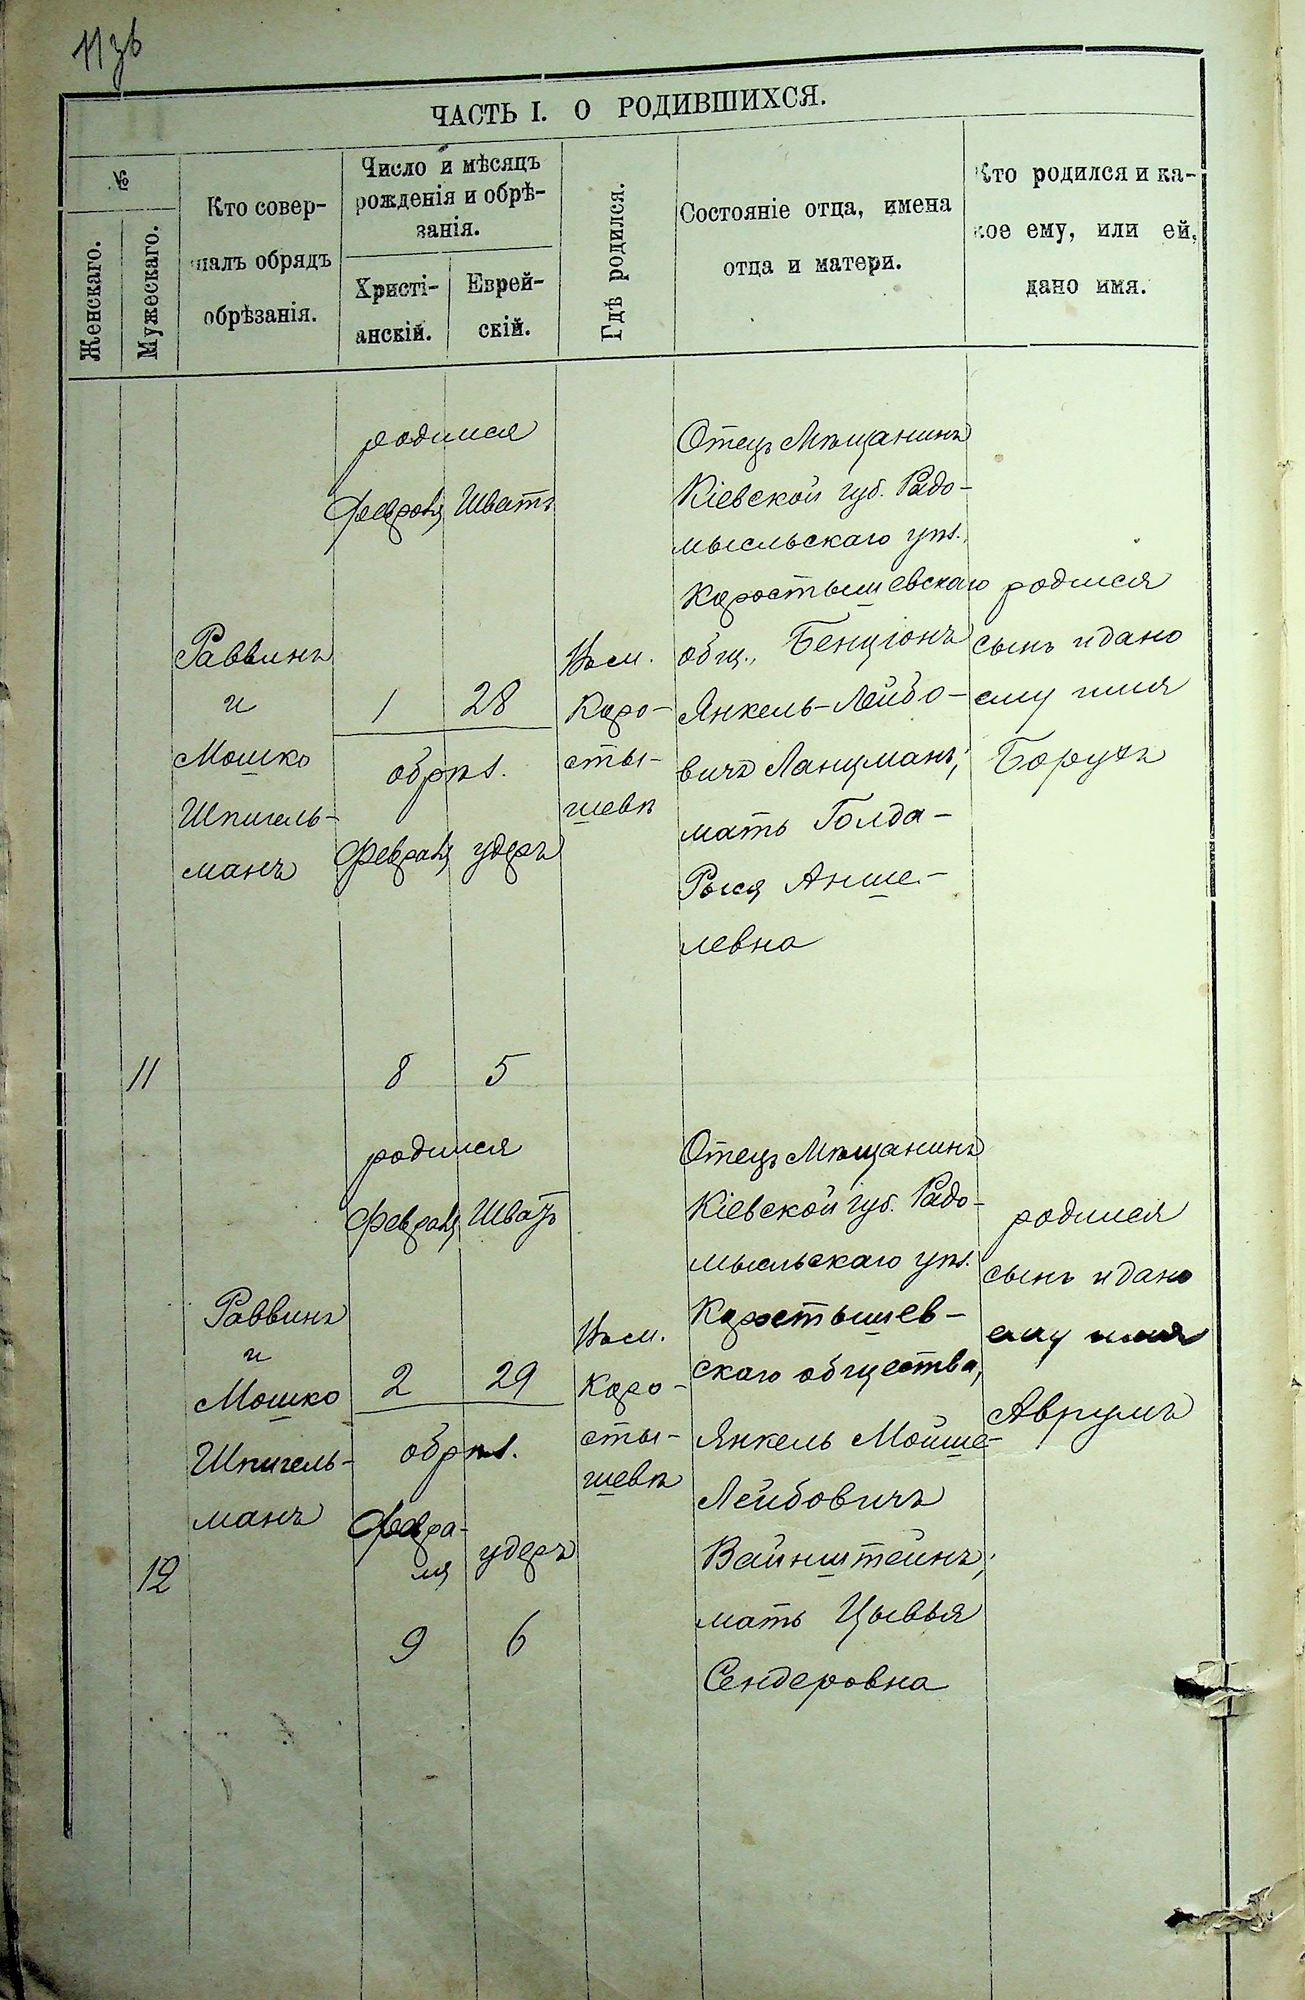 11 зв
ЧАСТЬ I. О РОДИВШИХСЯ.
№
Женскаго.
Мужескаго.
Кто совер-
шалъ обрядъ
обрѣзанія.
Число и мѣсяцъ
рожденія и обрѣ-
занія.
Христі-
анскій.
Еврей-
скій.
Гдѣ родился.
Состояніе отца, имена
отца и матери.
Кто родился и ка-
кое ему, или ей,
дано имя.
11
Раввинъ
и
Мошко
Шпигель-
манъ
родился
Февраля Шватъ
1 28
обрѣз.
Февраля удеръ
8 5
Въ м.
Коро-
сты-
шевѣ
Отецъ Мѣщанинъ
Кіевской губ. Радо-
мысльскаго уѣз.,
Коростышевскаго
общ., Бенціонъ
Янкель-Лейбо-
вичъ Ланцманъ,
мать Голда-
Рыся Анше-
левна
родился
сынъ и дано
ему имя
Борухъ
12
Раввинъ
и
Мошко
Шпигель-
манъ
родился
Февраля Шватъ
2 29
обрѣз.
Февра-
ля удеръ
9 6
Въ м.
Коро-
сты-
шевѣ
Отецъ Мѣщанинъ
Кіевской губ. Радо-
мысльскаго уѣз.
Коростышев-
скаго общества,
Янкель Мойше-
Лейбовичъ
Вайнштейнъ,
мать Цывья
Сендеровна
родился
сынъ и дано
ему имя
Аврумъ